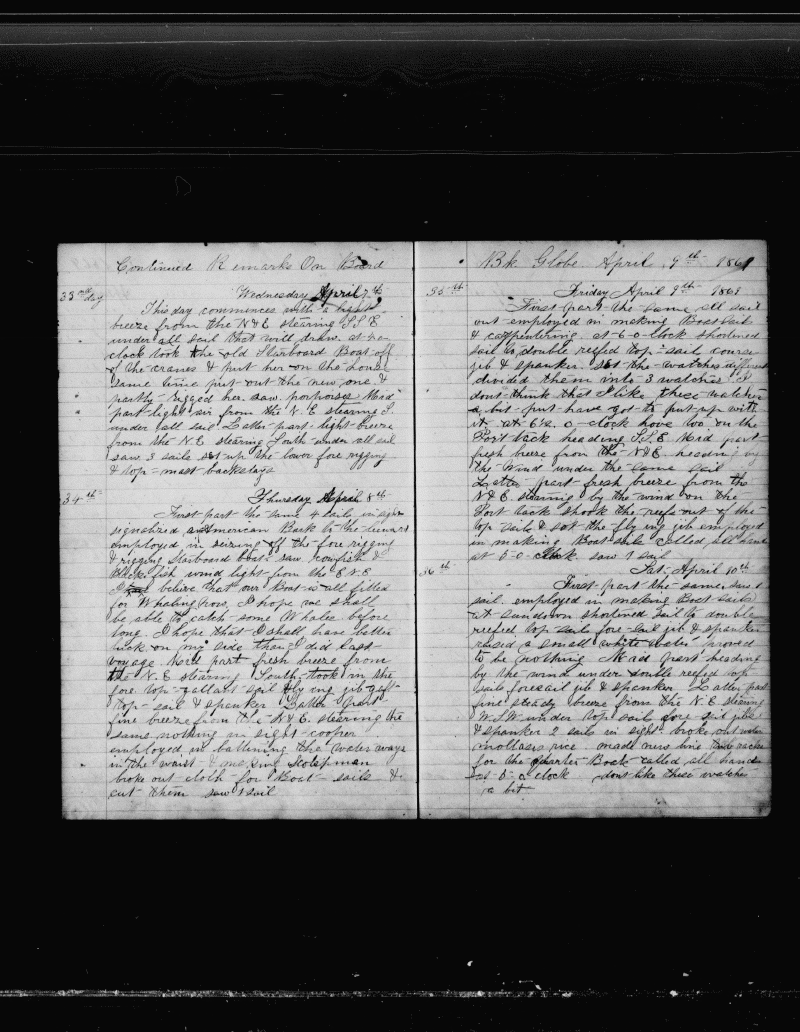 Continued Remarks On Board
33rd day Wednesday April 7th
This day commences with a light
breeze from the N&E stearing S.S.E
under all sail that will draw. at 4-o-
clock took the old Starboard Boat off
of the cranes & put her on the house
same time put out the new one &
partly rigged her. saw porpoises Mid
part light air from the N.E stearing S.
under full sail Latter part light breeze
from the N.E stearing South under all sail
saw 3 sails set up the lower fore rigging
& top-mast backstays
34th Thursday April 8th
First part the same 4 sails in sight
signalized American Bark to the leward
employed in seizing off the fore rigging
& rigging Starboard boat saw cowfish &
Black fish wind light from the E.N.E
I belive that our Boat is all fitted
for Whaling now, I hope we shall
be able to catch some Whales before
long. I hope that I shall have better
luck on my side than I did last
voyage. Mid part fresh breeze from
the N.E stearing South took in the
fore top-gallant sail flying jib gaff
top-sail & spanker Latter part
fine breeze from the N&E. stearing the
same nothing in sight cooper
employed in battening the water ways
in the waist &
broke out cloth for Boat sails &
cut them saw 1 sail
Bk Globe April 9th 1869
35th Friday April 9th 1869
First part the same all sail
out employed in making Boat sails
& carpentering at 6-o-clock shortened
sail to double reefed top-sail courses
jib & spanker. set the watches different
divided them into 3 watches. I
dont think that I like these watches
a bit but have got to put up with
it. at 6½ o-clock hove too on the
Port tack heading S.S.E Mid part
fresh breeze from the N&E. heading by
the wind under the same sail
Latter part fresh breeze from the
N&E stearing by the wind on the
Port tack shook the reefs out of the
top sails & sot the flying jib employed
in making Boat sails called all hands
at 5-o-clock saw 1 sail
36th Sat. April 10th
First part the same saw 1
sail. employed in making Boat sails
at sundown shortened sail to double
reefed top sails fore sail jib & spanker
raised a small white water proved
to be nothing Mid part heading
by the wind under double reefed top
sails foresail jib & spanker Latter part
fine steady breeze from the N.E stearing
W.S.W under top sail fore sail jibs
& spanker 2 sails in sight broke out water
mollases rice made new line tub racks
for the Quarter Boat called all hands
at 5-o-clock dont like these watches
a bit